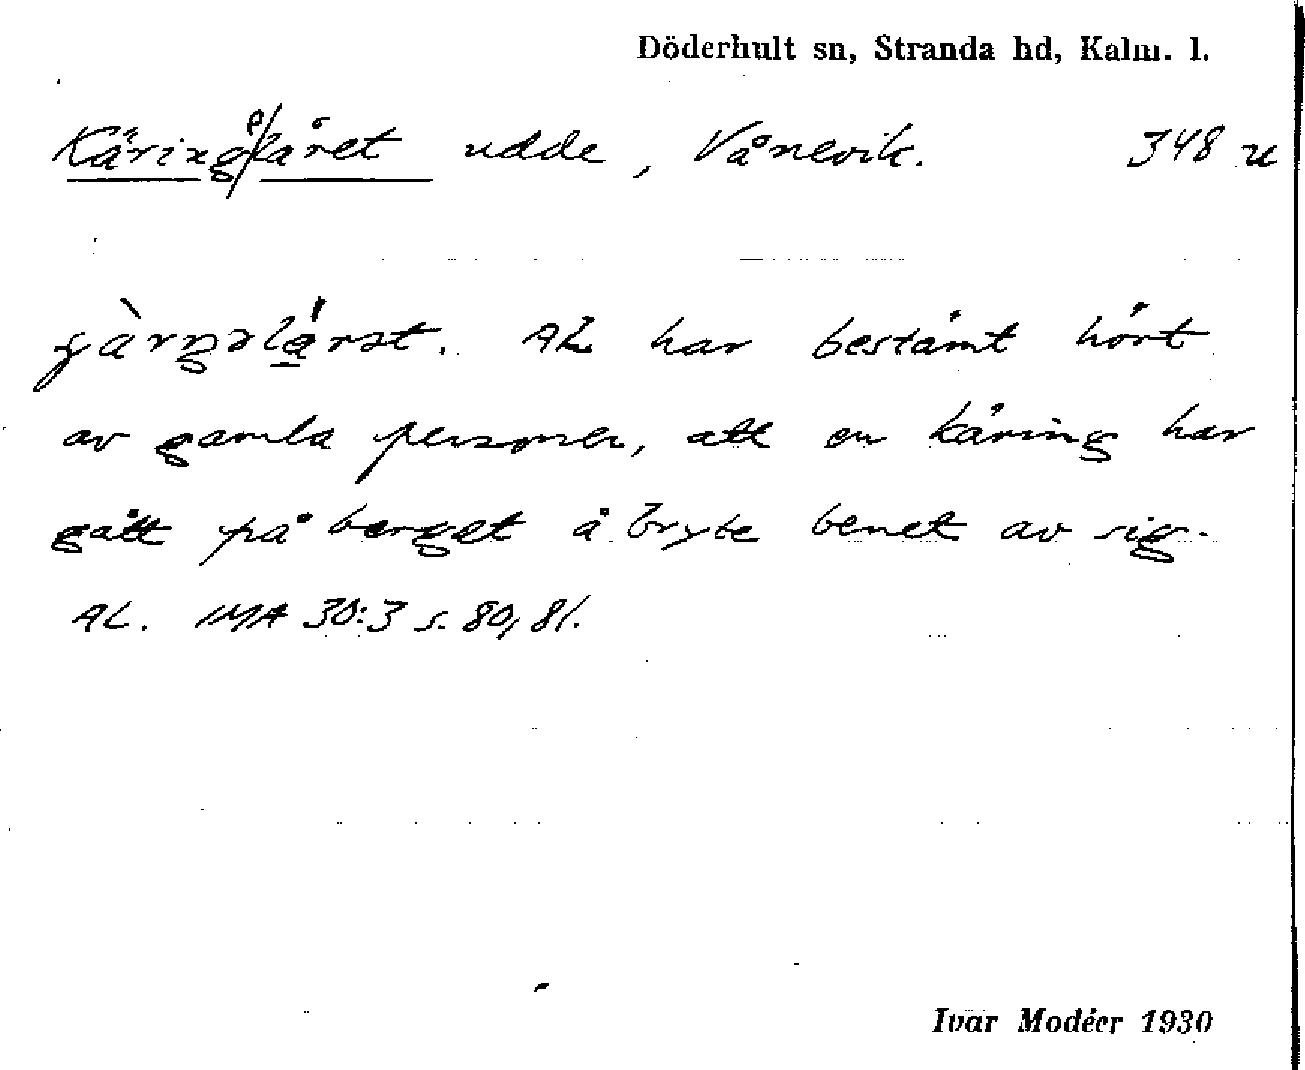 Döderhult sn, Stranda hd, Kalm. l.
Käringelåret udde, Vånevik. 348 u
har bestämt hört
av gamla personer, att en käring har
gått på berget å bryte benet av sig.
AL. IMA 30:3 s. 80, 81.
Ivar Modéer 1930